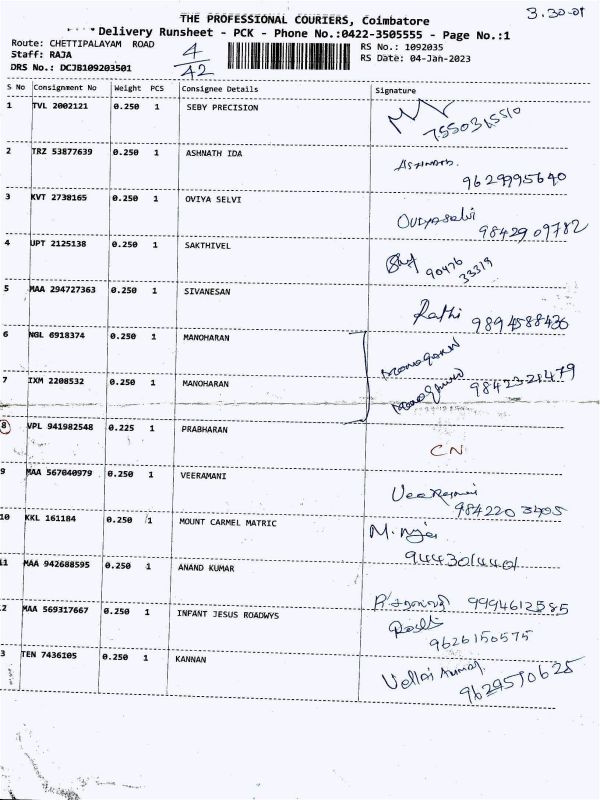 3.30-01
THE PROFESSIONAL COURIERS, Coimbatore
Delivery Runsheet - PCK - Phone No.:0422-3505555 - Page No.:1
Route: CHETTIPALAYAM ROAD
Staff: RAJA
DRS No.: DCJB109203501
4/42
RS No.: 1092035
RS Date: 04-Jan-2023
S No Consignment No Weight PCS Consignee Details Signature
1 TVL 2002121 0.250 1 SEBY PRECISION
2 TRZ 53877639 0.250 1 ASHNATH IDA
9629995640
3 KVT 2738165 0.250 1 OVIYA SELVI Oviyaselvi
9842909782
4 UPT 2125138 0.250 1 SAKTHIVEL
90476
33319
5 MAA 294727363 0.250 1 SIVANESAN Rathi 9894588436
6 NGL 6918374 0.250 1 MANOHARAN
7 IXM 2208532 0.250 1 MANOHARAN
8 VPL 941982548 0.225 1 PRABHARAN CN
9 MAA 567040979 0.250 1 VEERAMANI
984220 3405
10 KKL 161184 0.250 1 MOUNT CARMEL MATRIC
9443014401
11 MAA 942688595 0.250 1 ANAND KUMAR 9994612585
2 MAA 569317667 0.250 1 INFANT JESUS ROADWYS
9626150575
3 TEN 7436105 0.250 1 KANNAN
9629590625